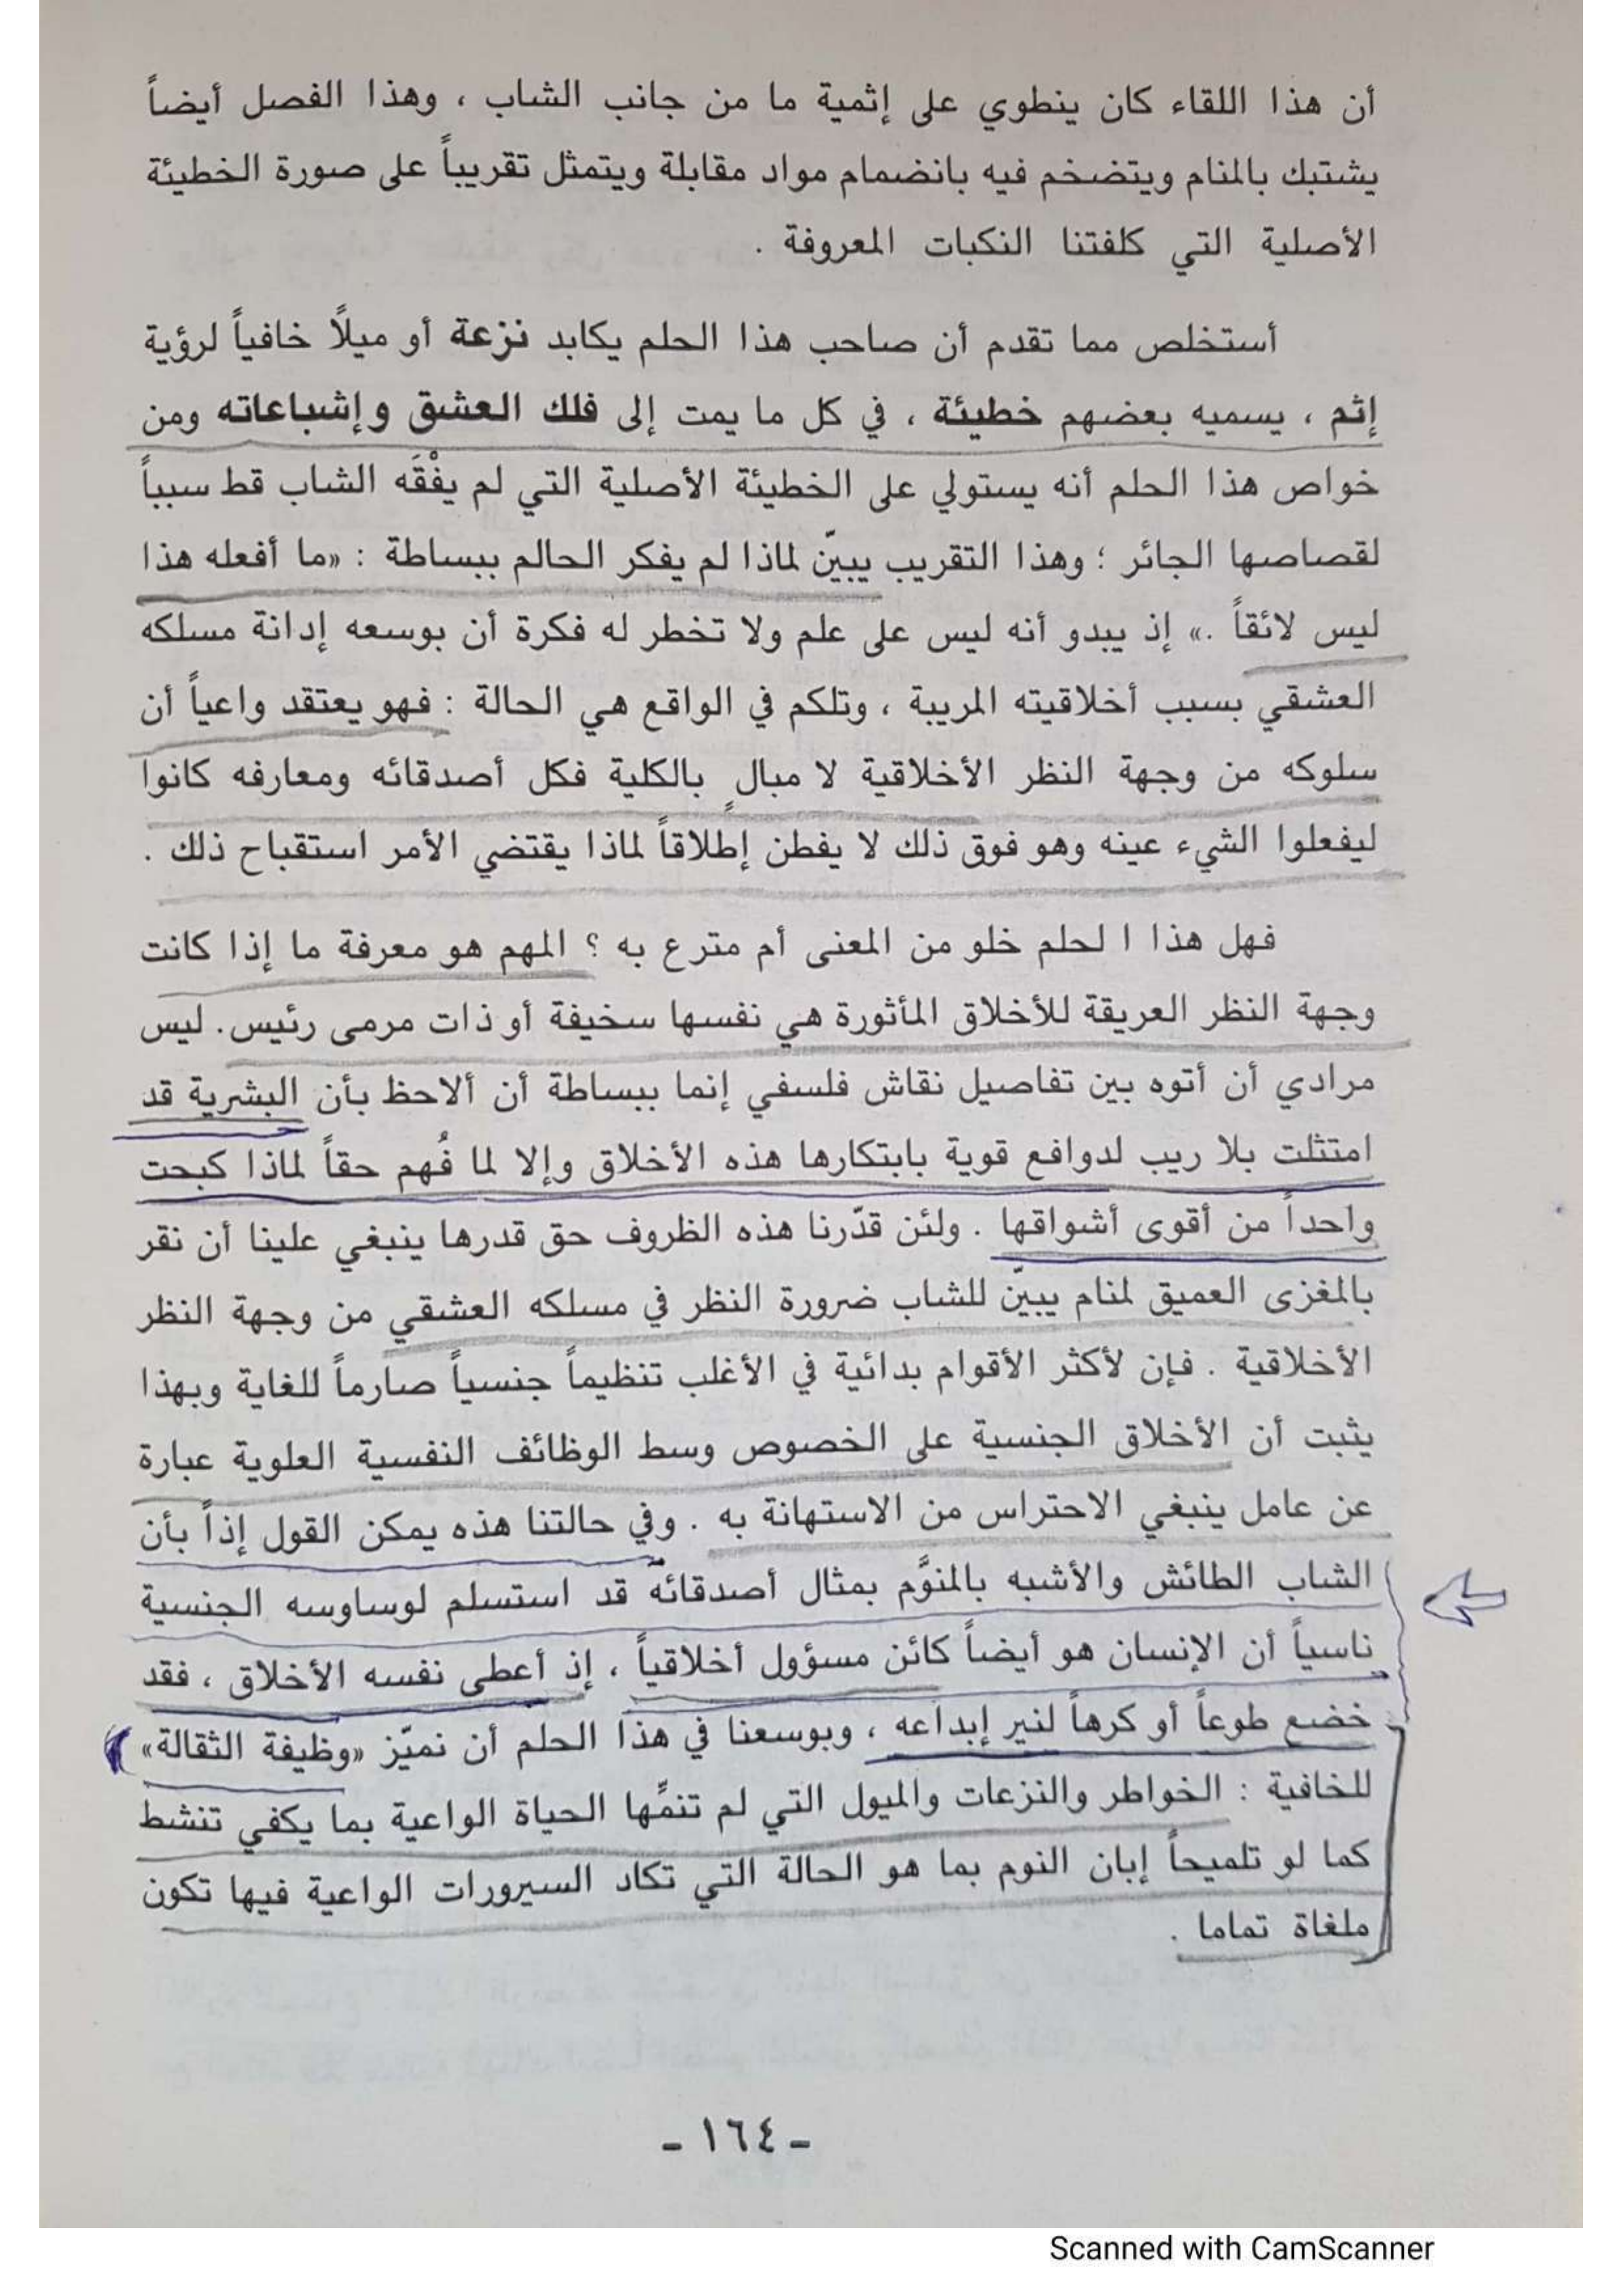 أن هذا اللقاء كان ينطوي على إثمية ما من جانب الشاب ، وهذا الفصل أيضاً
يشتبك بالمنام ويتضخم فيه بانضمام مواد مقابلة ويتمثل تقريباً على صورة الخطيئة
الأصلية التي كلفتنا النكبات المعروفة .
أستخلص مما تقدم أن صاحب هذا الحلم يكابد نزعة أو ميلاً خافياً لرؤية
إثم ، يسميه بعضهم خطيئة ، في كل ما يمت إلى فلك العشق وإشباعاته ومن
خواص هذا الحلم أنه يستولي على الخطيئة الأصلية التي لم يفْقَه الشاب قط سبباً
لقصاصها الجائر ؛ وهذا التقريب يبيّن لماذا لم يفكر الحالم ببساطة : «ما أفعله هذا
ليس لائقاً .» إذ يبدو أنه ليس على علم ولا تخطر له فكرة أن بوسعه إدانة مسلكه
العشقي بسبب أخلاقيته المريبة ، وتلكم في الواقع هي الحالة : فهو يعتقد واعياً أن
سلوكه من وجهة النظر الأخلاقية لا مبالٍ بالكلية فكل أصدقائه ومعارفه كانوا
ليفعلوا الشيء عينه وهو فوق ذلك لا يفطن إطلاقاً لماذا يقتضي الأمر استقباح ذلك .
فهل هذا ا لحلم خلو من المعنى أم مترع به ؟ المهم هو معرفة ما إذا كانت
وجهة النظر العريقة للأخلاق المأثورة هي نفسها سخيفة أو ذات مرمى رئيس. ليس
مرادي أن أتوه بين تفاصيل نقاش فلسفي إنما ببساطة أن ألاحظ بأن البشرية قد
امتثلت بلا ريب لدوافع قوية بابتكارها هذه الأخلاق وإلا لما فُهم حقاً لماذا كبحت
واحداً من أقوى أشواقها . ولئن قدّرنا هذه الظروف حق قدرها ينبغي علينا أن نقر
بالمغزى العميق لمنام يبيّن للشاب ضرورة النظر في مسلكه العشقي من وجهة النظر
الأخلاقية . فإن لأكثر الأقوام بدائية في الأغلب تنظيماً جنسياً صارماً للغاية وبهذا
يثبت أن الأخلاق الجنسية على الخصوص وسط الوظائف النفسية العلوية عبارة
عن عامل ينبغي الاحتراس من الاستهانة به . وفي حالتنا هذه يمكن القول إذاً بأن
الشاب الطائش والأشبه بالمنوَّم بمثال أصدقائه قد استسلم لوساوسه الجنسية
ناسياً أن الإنسان هو أيضاً كائن مسؤول أخلاقياً ، إذ أعطى نفسه الأخلاق ، فقد
خضع طوعاً أو كرهاً لنير إبداعه ، وبوسعنا في هذا الحلم أن نميّز «وظيفة الثقالة»
للخافية : الخواطر والنزعات والميول التي لم تنمِّها الحياة الواعية بما يكفي تنشط
كما لو تلميحاً إبان النوم بما هو الحالة التي تكاد السيرورات الواعية فيها تكون
ملغاة تماما .
- ١٦٤ -
Scanned with CamScanner